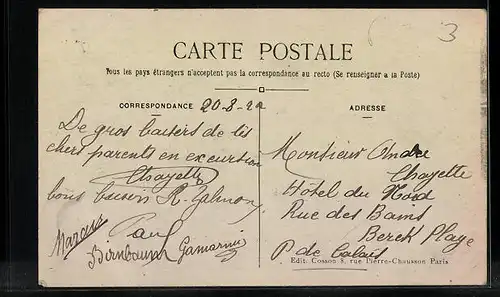 3
CARTE POSTALE
Tous les pays étrangers n'acceptent pas la correspondance au recto (Se renseigner à la Poste)
CORRESPONDANCE 20-8-22
ADRESSE
De gros baisers de tes
chers parents en excursion
Chayette
bons baisers R.
Marcus
Paul
Birnbaum
Monsieur André
Chayette
Hôtel du Nord
Rue des Bains
Berck Plage
P. de Calais
Edit. Cosson 8, rue Pierre-Chausson Paris